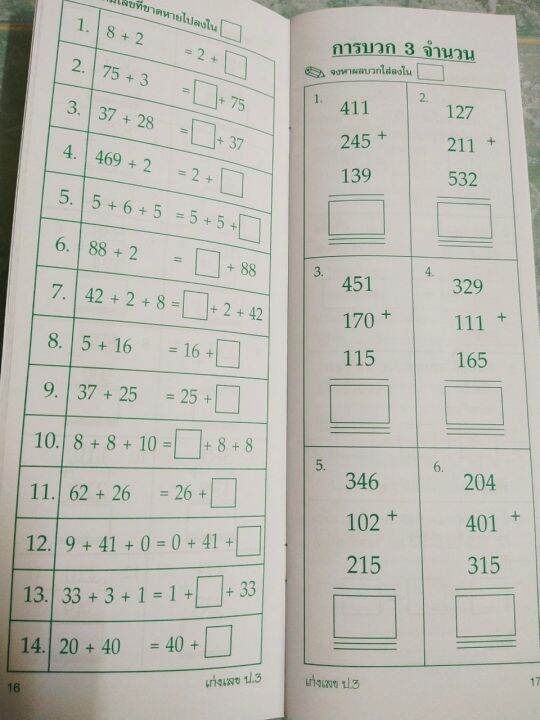 เลขที่ขาดหายไปลงใน
1. 8 + 2 = 2 +
2. 75 + 3 = + 75
3. 37 + 28 = + 37
4. 469 + 2 = 2 +
5. 5 + 6 + 5 = 5 + 5 +
6. 88 + 2 = + 88
7. 42 + 2 + 8 = + 2 + 42
8. 5 + 16 = 16 +
9. 37 + 25 = 25 +
10. 8 + 8 + 10 = + 8 + 8
11. 62 + 26 = 26 +
12. 9 + 41 + 0 = 0 + 41 +
13. 33 + 3 + 1 = 1 + + 33
14. 20 + 40 = 40 +
16
เก่งเลข ป.3
การบวก 3 จำนวน
จงหาผลบวกใส่ลงใน
1.
411
245 +
139
2.
127
211 +
532
3.
451
170 +
115
4.
329
111 +
165
5.
346
102 +
215
6.
204
401 +
315
เก่งเลข ป.3
17